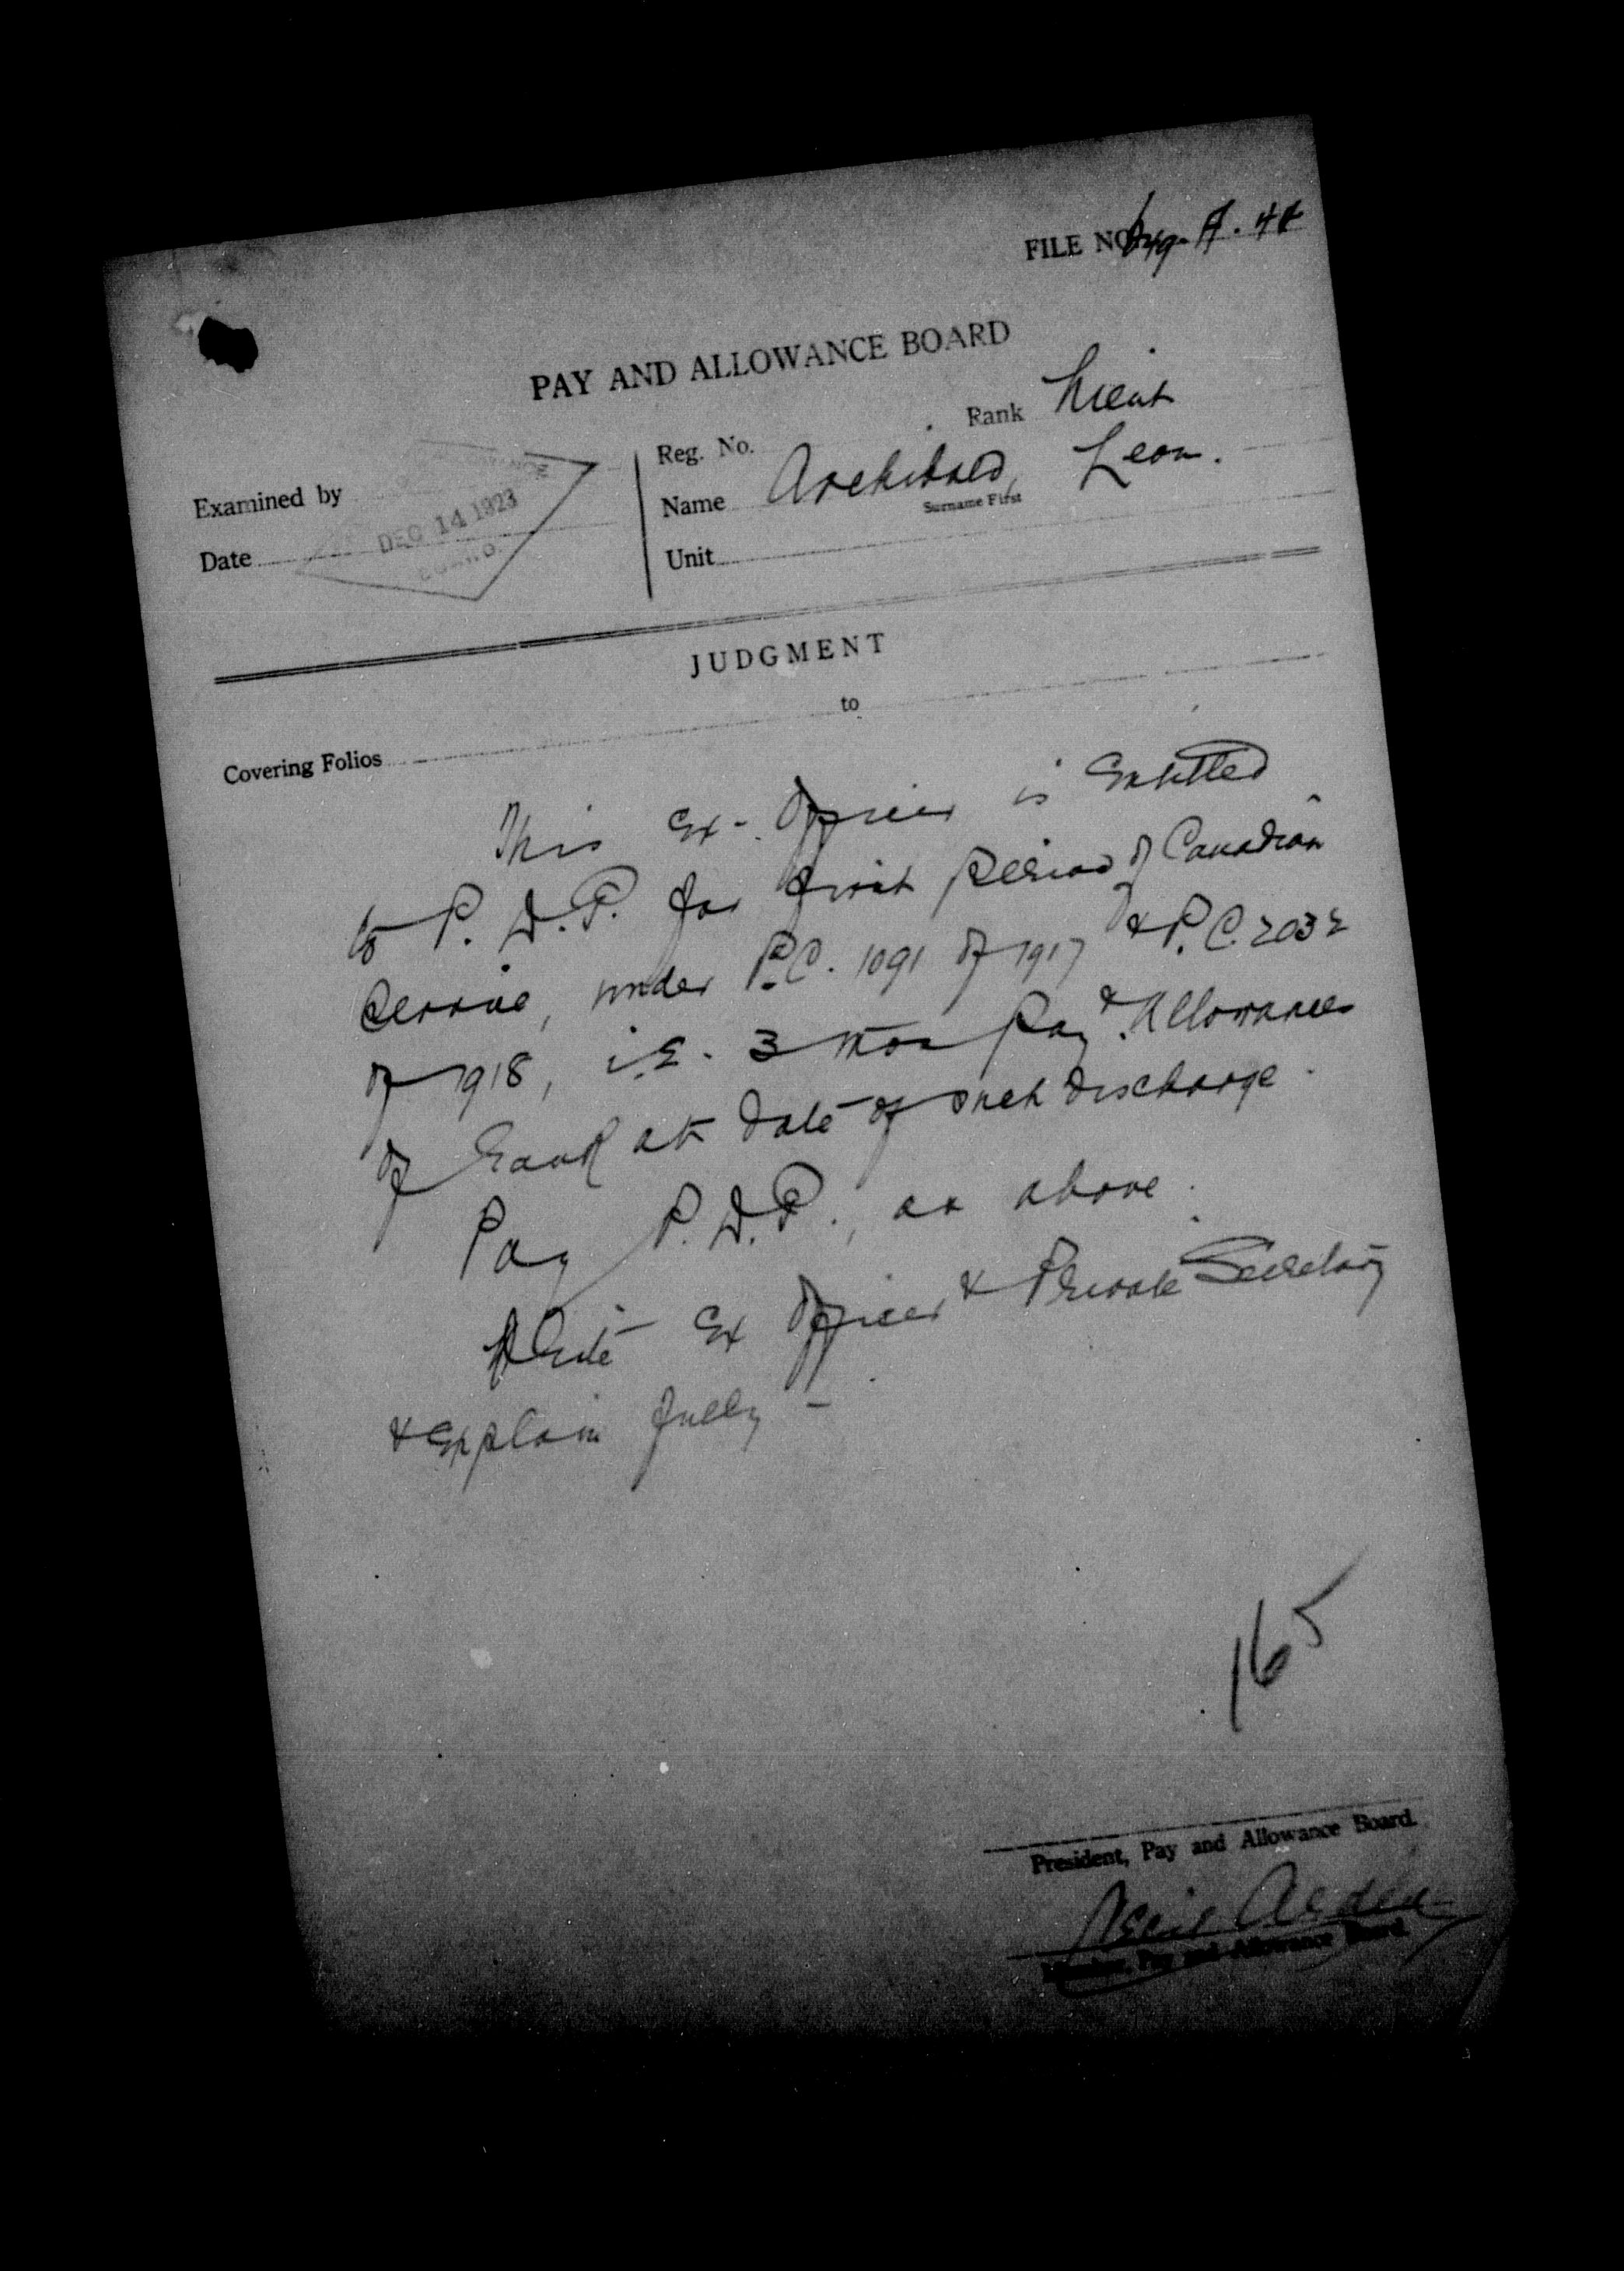 FILE NO. A. 44
PAY AND ALLOWANCE BOARD
Reg. No. Rank Lieut
Examined by
Name Archibald, Leon.
Surname First
DEC 14 1923
Date
Unit
JUDGMENT
Covering Folios to
This Ex-Officer is Entitled
to P.D.P. for first period of Canadian
Service, under P.C. 1091 of 1917 & P.C. 2032
of 1918, i.E. 3 mos Pay & Allowances
of Rank at date of such discharge.
Pay P.D.P., as above.
Write Ex Officer & Private Secretary
& Explain fully -
165
President, Pay and Allowance Board.
Member, Pay and Allowance Board.